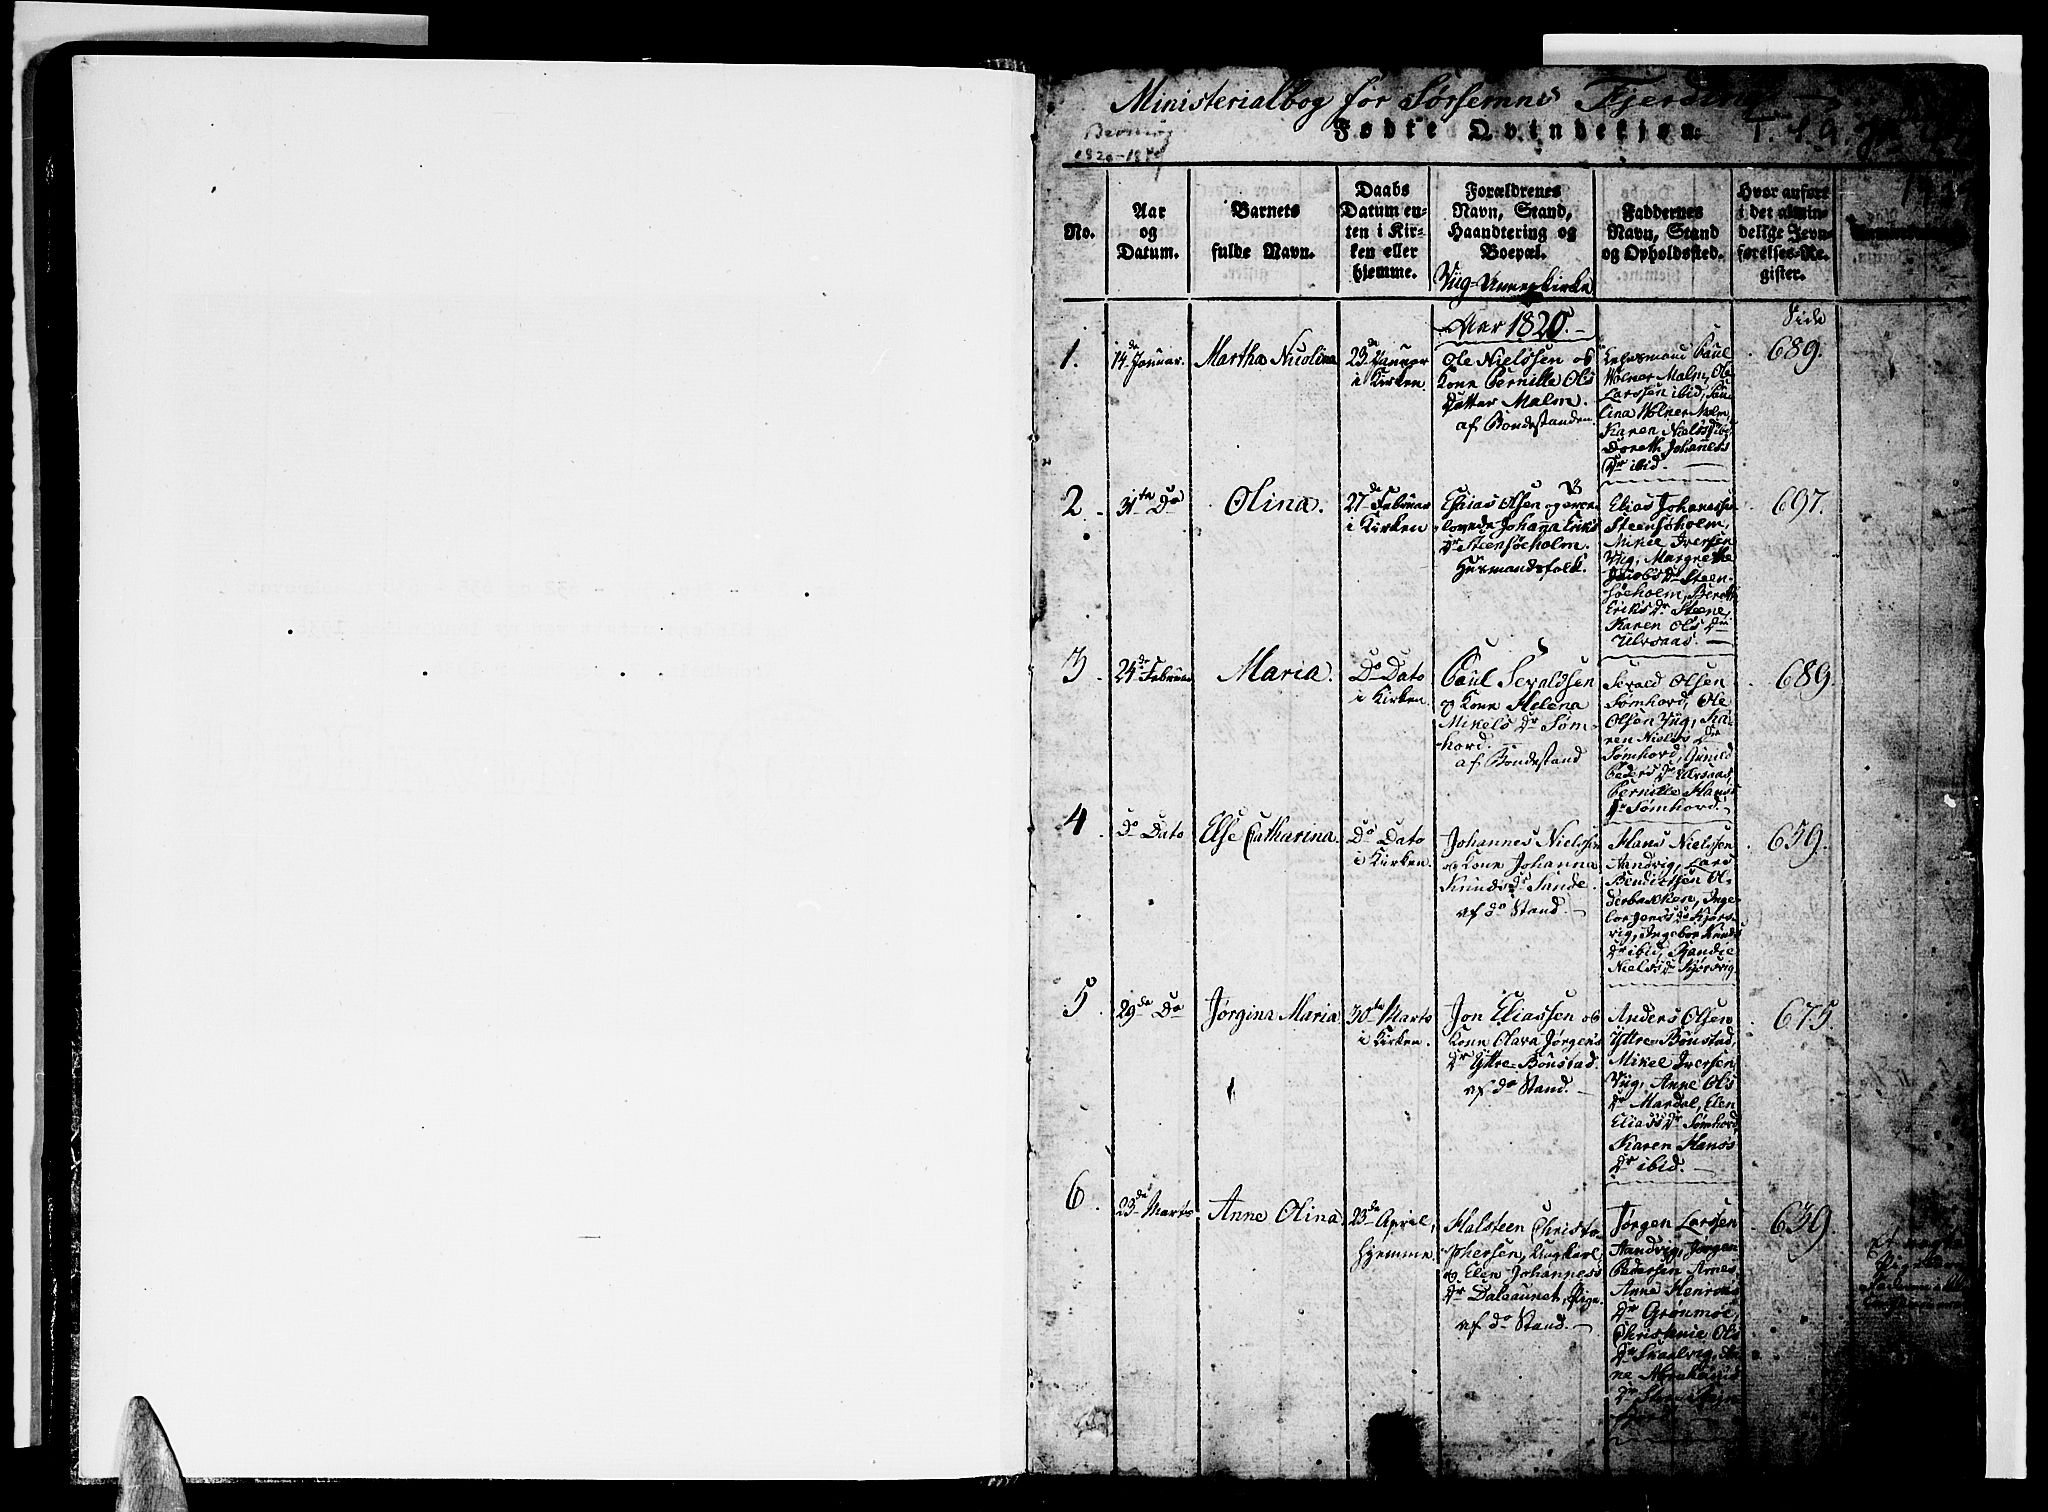 Ministerialbog for Sørsemnes Fjerding
Fødte Qvindekjøn.
1820-1829
No.
Aar
og
Datum.
Barnets
fulde Navn.
Daabs
Datum en-
ten i Kir-
ken eller
hjemme.
Forældrenes
Navn, Stand,
Haandtering og
Boepæl.
Faddernes
Navn, Stand
og Opholdssted.
Hvor anført
i det almin-
delige Jevn-
førelses-Re-
gister.
Viig-Annexkirke
Aar 1820.
Side
1.
14de Januar.
Martha Nicolina
23de Januar
i Kirken
Ole Nielssen og
Kone Pernille Ols
Datter Malm.
af Bondestanden.
Paul
Wolner Malm, Ole
Larssen ibid,
Wolner Malm,
Karen Niels Dr ibid,
Doreth Johannes
Dr ibid.
689.
2.
31te Do
Olina.
27de Februar
i Kirken
Esaias Olsen og
Johana Eriks
Dr Steensøeholm.
Huusmandsfolk.
Elias Johannesen
Steensøholm,
Mikel Iversen
Viig, Margrethe
Jacobs Dr Steen-
søeholm, Bereth
Eriks Dr Steene,
Karen Ols Dr
Ulvsaas.
697.
3.
24de Februar
Maria.
Do Dato
i Kirken
Paul Sevaldsen
og Kone Helena
Mikels Dr Søm-
hovd.
af Bondestand
Sevald Olsen
Sømhovd, Ole
Olsen Viig, Ka-
ren Niels Dr
Sømhovd, Gunild
Peders Dr Ulvsaas,
Pernille Hans
Dr Sømhovd.
689.
4.
Do Dato
Else Catharina.
Do Dato
i Kirken.
Johannes Nielssen
og Kone Johanna
Knuds Dr Sande.
af do Stand.
Hans Nielssen
Aandvig, Lars
Bendictsen Ol-
derbakken, Inge-
bor Jens Dr Kjørs-
vig, Ingebor Knuds
Dr ibid, Randie
Niels Dr Kjørsvig
659.
5.
29de Do
Jørgina Maria
30te Marts
i Kirken.
Jon Eliassen og
Kone Olava Jørgens
Dr Yttre-Bønstad.
af do Stand.
Anders Olsen
Yttre-Bønstad,
Mikel Iversen
Viig, Anne Ols
Dr Mardal, Elen
Elias Dr Sømhovd,
Karen Hans
Dr ibid.
675.
6.
23de Marts
Anne Olina.
23de April,
hjemme.
Halsteen Christo-
phersen, Ungkarl,
og Elen Johannes
Dr Daleaunet, Pige.
af do Stand.
Jørgen Larssen
Aandvig, Jørgen
Pedersen Arnes,
Anne Henriks
Dr Grønmøe,
Christenie Ols
Dr Skaalvig,
ne Abrahams
Dr
639.